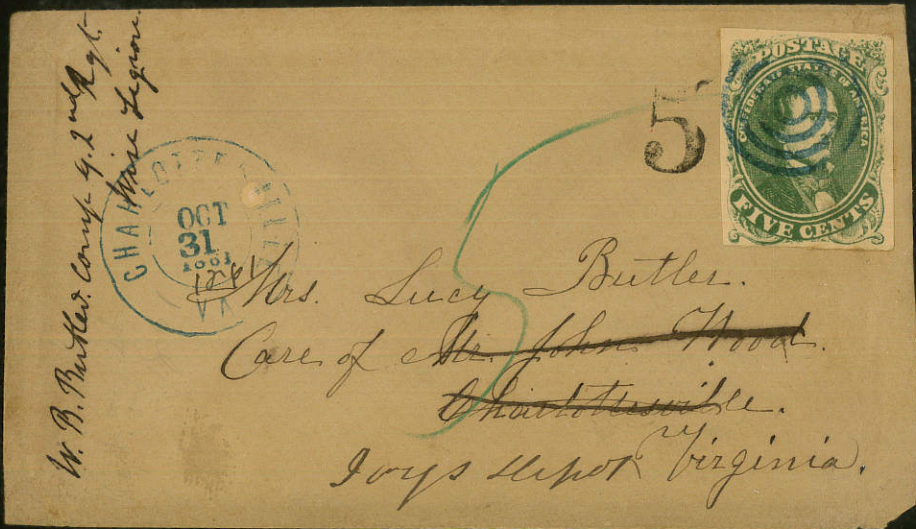 W. B. Butler. Comp. G. 2nd Rgt.
Wise Legion.
CHARLOTTESVILLE
OCT
31
1861
VA
1861
5
5
POSTAGE
CONFEDERATE STATES OF AMERICA
FIVE CENTS
Mrs. Lucy Butler.
Care of Mr. John Wood.
Charlottesville.
Ivys Depot Virginia.